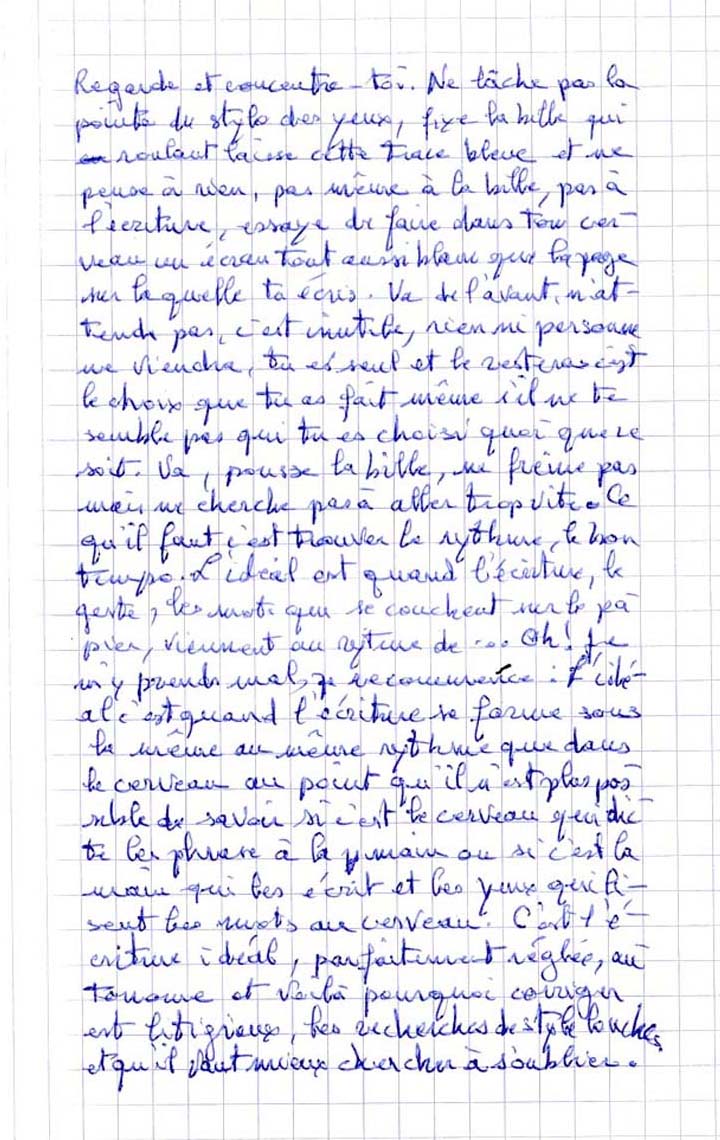 Regarde et concentre-toi. Ne lâche pas la
pointe du stylo des yeux, fixe la bille qui
en roulant laisse cette trace bleue et ne
pense à rien, pas même à la bille, pas à
l'écriture, essaye de faire dans ton cer-
veau un écran tout aussi blanc que la page
sur laquelle tu écris. Va de l'avant, n'at-
tends pas, c'est inutile, rien ni personne
ne viendra, tu es seul et le resteras c'est
le choix que tu as fait même s'il ne te
semble pas qui tu es choisi quoi que ce
soit. Va, pousse la bille, ne freine pas
mais ne cherche pas à aller trop vite. Ce
qu'il faut c'est trouver le rythme, le bon
tempo. L'idéal est quand l'écriture, le
geste, les mots qui se couchent sur le pa
pier, viennent au rytme de ... Oh! Je
m'y prends mal, je recommence : L'idé-
al c'est quand l'écriture se forme sous
la même au même rythme que dans
le cerveau au point qu'il n'est plus pos
sible de savoir si c'est le cerveau qui dic
te les phrase à la main ou si c'est la
main qui les écrit et les yeux qui li-
sent les mots au cerveau. C'est l'é-
criture idéal, parfaitement réglée, au
tonome et voilà pourquoi corriger
est litigieux, les recherches de style louches,
et qu'il vaut mieux chercher à s'oublier.